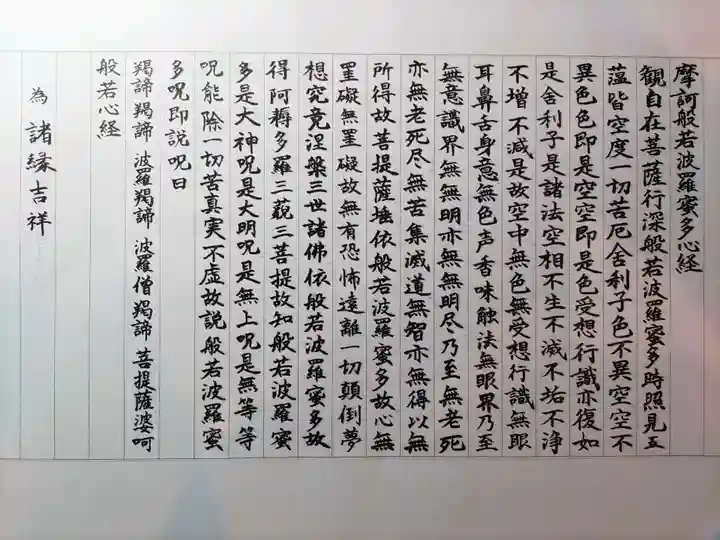 摩訶般若波羅蜜多心経
観自在菩薩行深般若波羅蜜多時照見五
薀皆空度一切苦厄舎利子色不異空空不
異色色即是空空即是色受想行識亦復如
是舎利子是諸法空相不生不滅不垢不浄
不增不減是故空中無色無受想行識無眼
耳鼻舌身意無色声香味触法無眼界乃至
無意識界無無明亦無無明尽乃至無老死
亦無老死尽無苦集滅道無智亦無得以無
所得故菩提薩埵依般若波羅蜜多故心無
罣礙無罣礙故無有恐怖遠離一切顛倒夢
想究竟涅槃三世諸佛依般若波羅蜜多故
得阿耨多羅三藐三菩提故知般若波羅蜜
多是大神呪是大明呪是無上呪是無等等
呪能除一切苦真実不虚故説般若波羅蜜
多呪即説呪曰
羯諦 羯諦 波羅羯諦 波羅僧羯諦 菩提薩婆呵
般若心経
為 諸縁吉祥